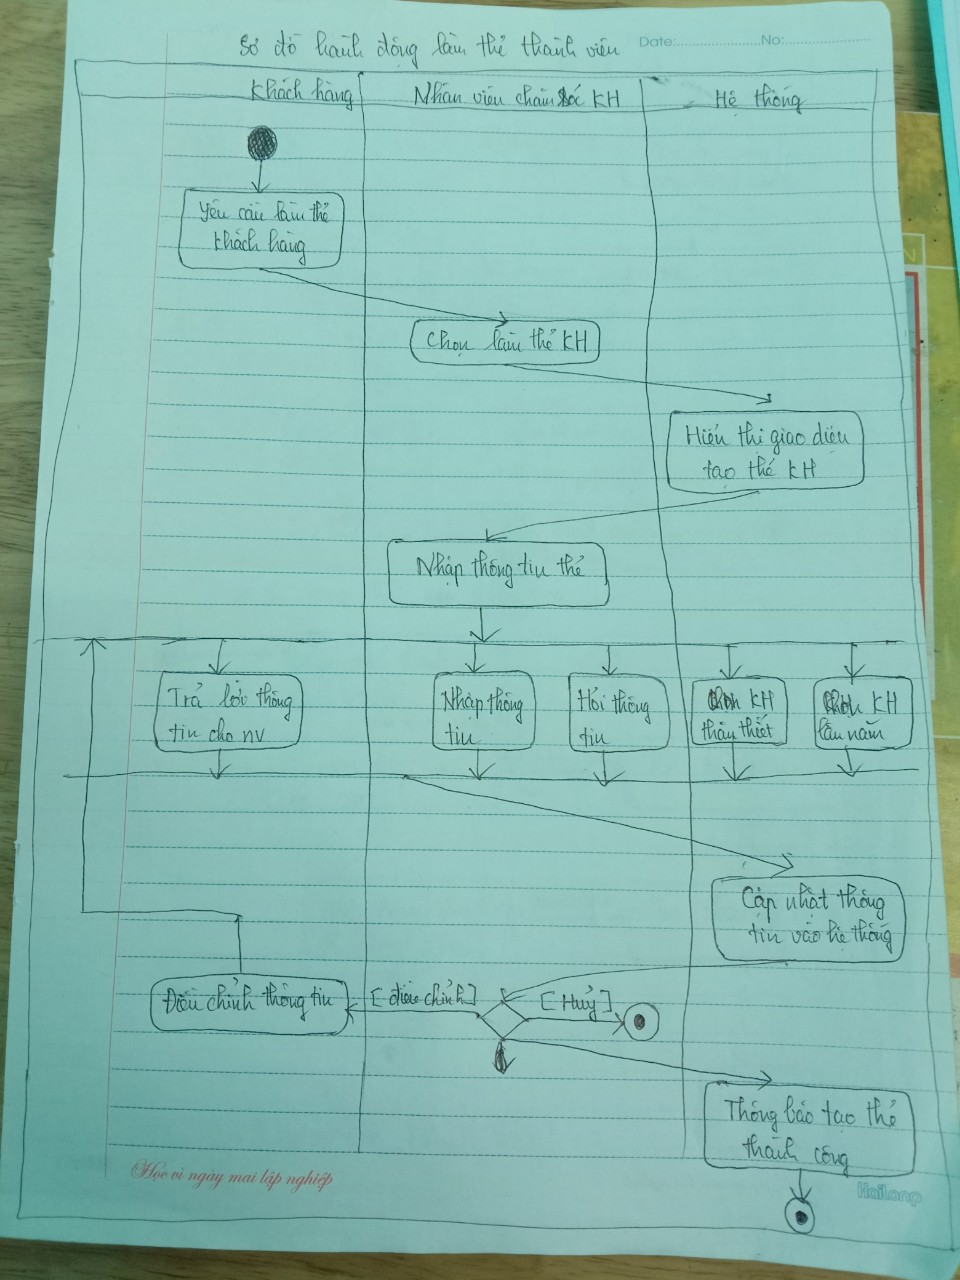 Sơ đồ hành động làm thẻ thành viên
Date: No:
Khách hàng
Nhân viên chăm sóc KH
Hệ thống
Yêu cầu làm thẻ
khách hàng
Chọn làm thẻ KH
Hiển thị giao diện
tạo thẻ KH
Nhập thông tin thẻ
Trả lời thông
tin cho nv
Nhập thông
tin
Hỏi thông
tin
Chọn KH
thân thiết
Chọn KH
lâu năm
Cập nhật thông
tin vào hệ thống
Điều chỉnh thông tin
[điều chỉnh]
[Huỷ]
Thông báo tạo thẻ
thành công
Học vì ngày mai lập nghiệp
HaiLong